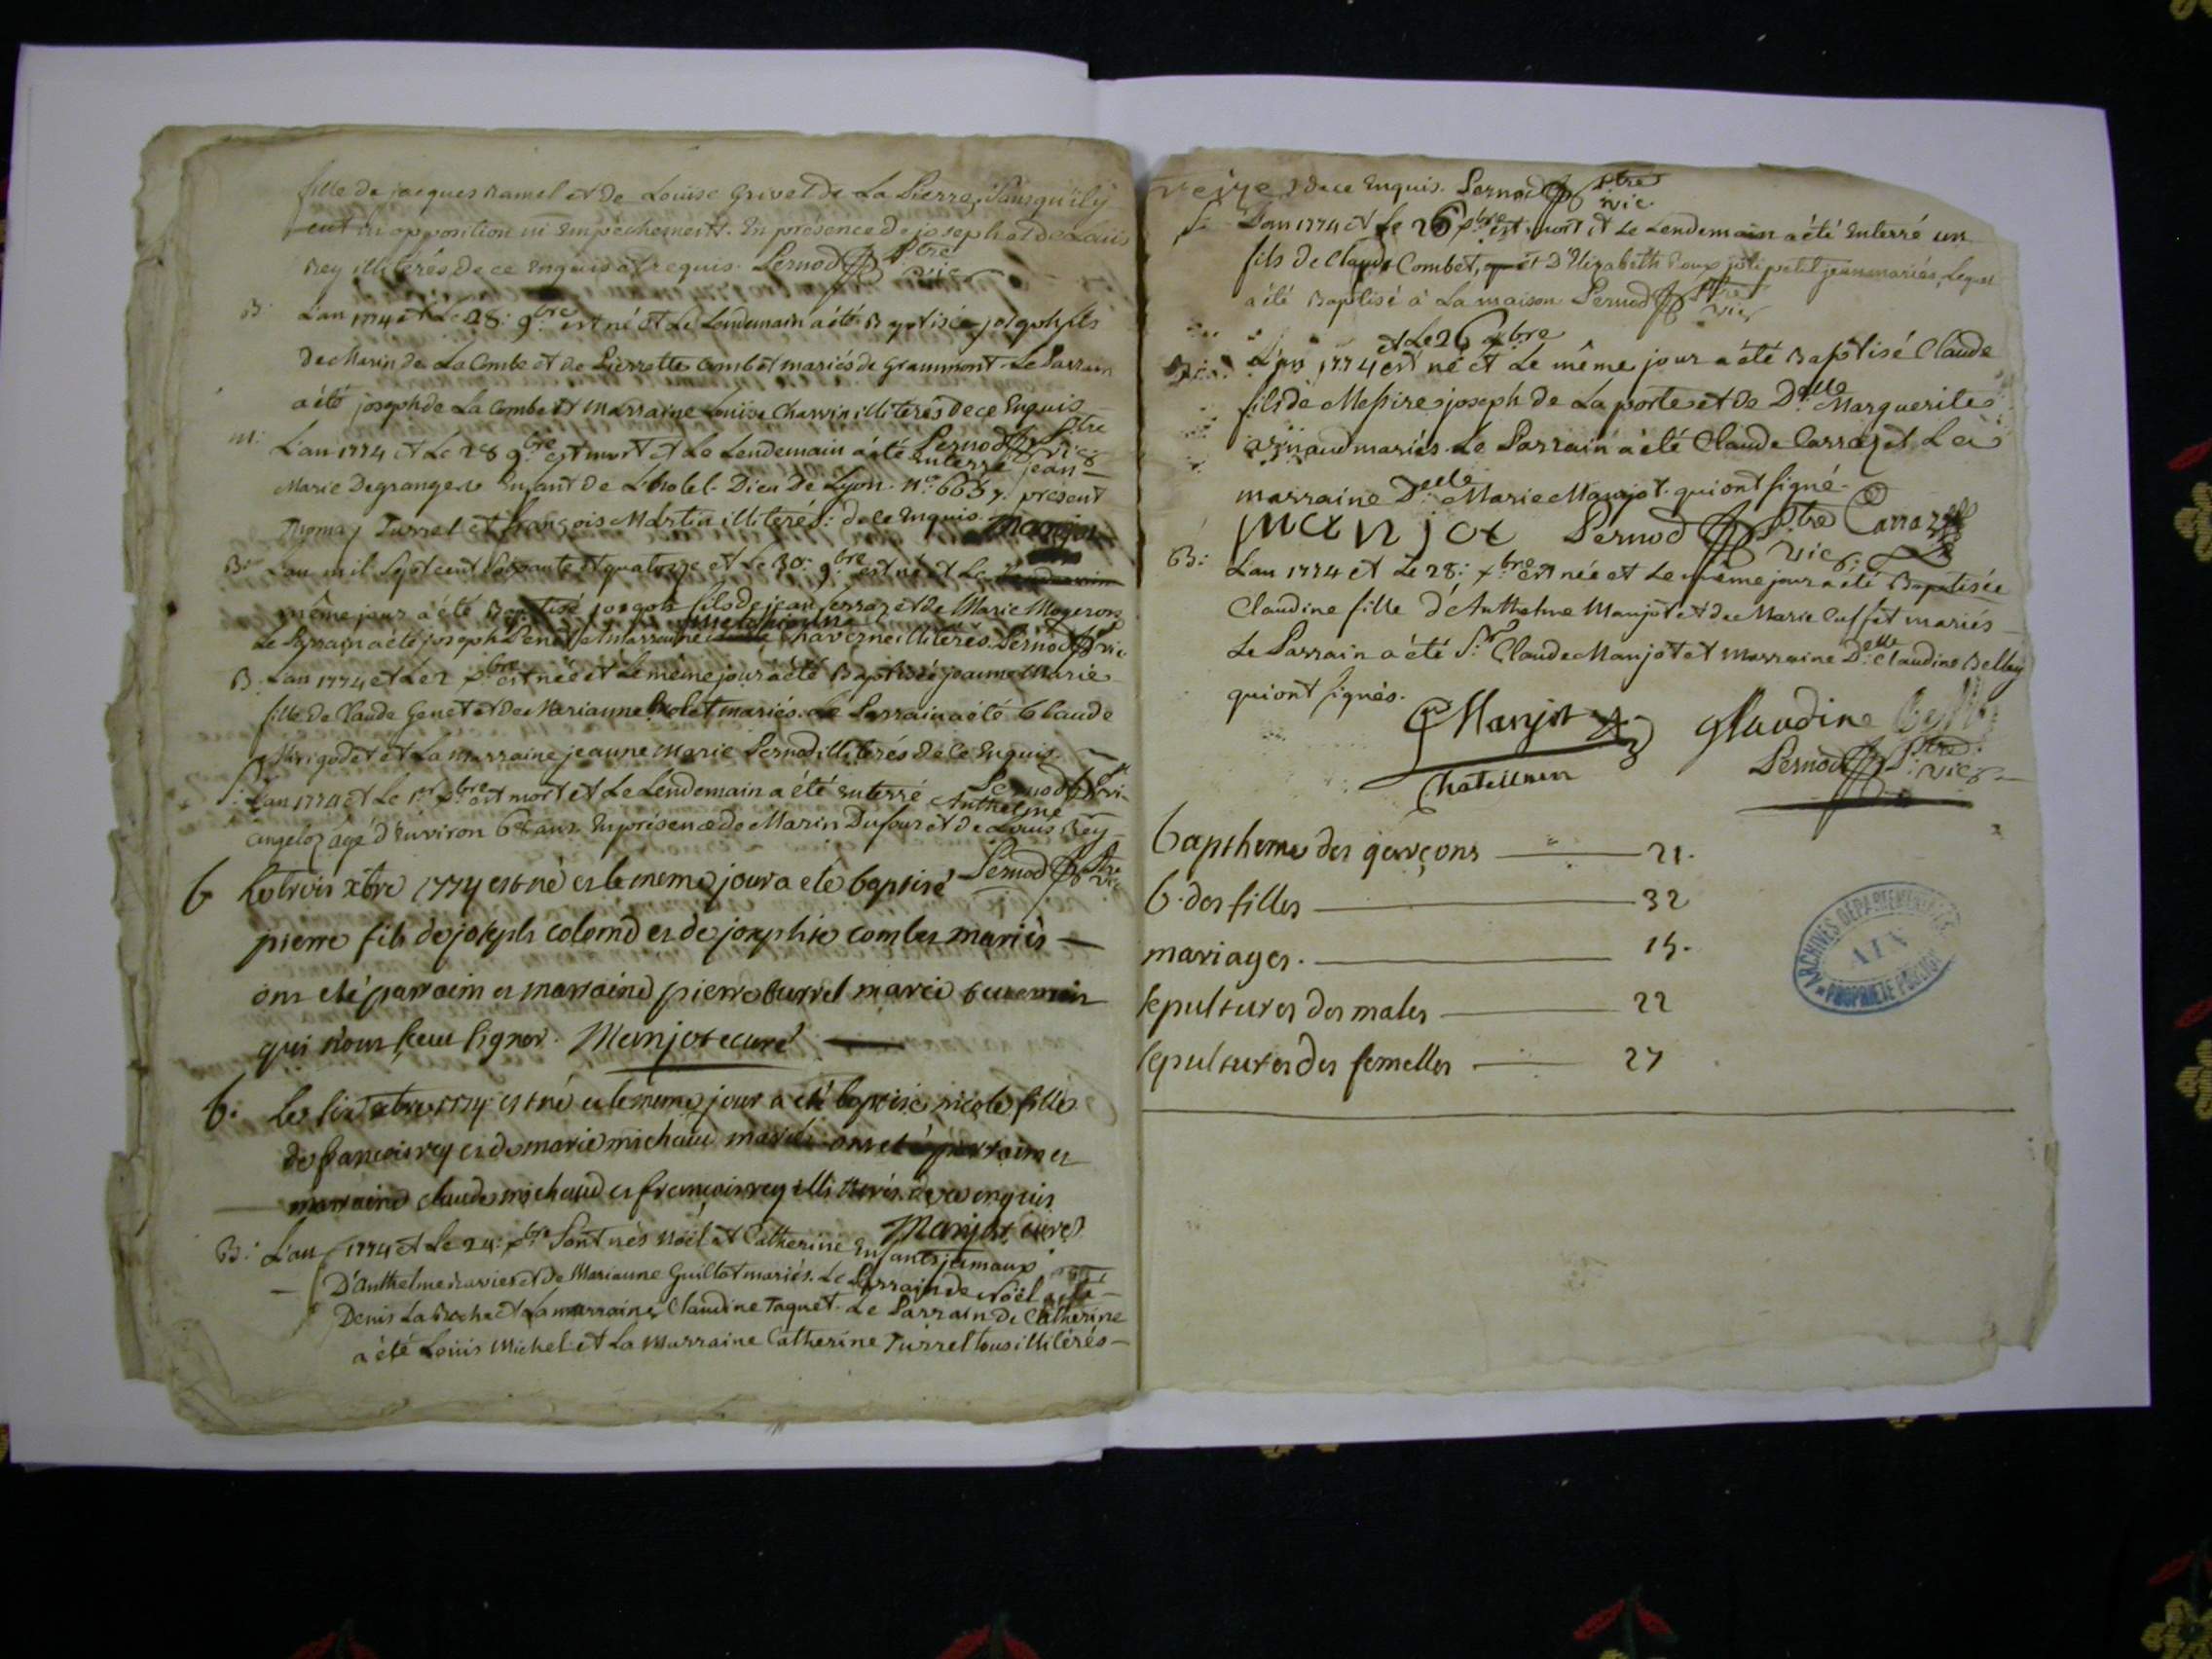 fille de jacques Ramel et de Louise Grivet de La Pierre, Sans qu'il y
eut ni opposition ni Empêchement. En présence de joseph et de Louis
Rey illiterés de ce Enquis et requis. Pernod Ptre vic
B: L'an 1774 et Le 28: 9.bre est né et Le Lendemain a été Baptisé joseph fils
de Marin de La Combe et de Pierrette Combet mariés de Grammont. Le Parrain
a été joseph de La Combe et Marraine Louise Charvin illiterés de ce Enquis
Pernod Ptre vic
m: L'an 1774 et Le 28 9.bre est mort et Le Lendemain a été Enterré jean
Marie Degranger Enfant de L'hotel-Dieu De Lyon. N.o present
Turrel et françois Martin illiterés: de ce Enquis.
B: L'an mil Sept cent Soixante et quatorze et Le 30: 9.bre est né et Le Lendemain
même jour a été Baptisé joseph fils de jean ferraz et de Marie Mogeron
Le Parrain a été joseph et marraine Chaverne illiterés. Pernod Ptre vic
B. L'an 1774 et Le 2 x.bre est née et Le même jour a été Baptisée jeanne Marie
fille de Claude Genet et de Marianne mariés. Le Parrain a été Claude
Parigodet et La marraine jeanne Marie Pernod illiterés de ce Enquis.
Pernod vic
S: L'an 1774 et Le 1.er x.bre est mort et Le Lendemain a été Enterré Anthelme
Angeloz agé d'Environ ans. En présence de Marin Dufour et de Louis Rey
Pernod Ptre vic
b Le trois xbre 1774 est né et le meme jour a eté baptisé
pierre fils de joseph colomd et de josephte combet mariés
ont eté parrain et marraine pierre burrel marie
qui n'ont sceu signer. Manjot curé
b: Le six xbre 1774 est né et le meme jour a eté baptisé nicole fille
de francois rey et de marie michaud mariés ont eté parrain et
marraine claude michaud et francois rey illiterés de ce enquis
Manjot curé
B: L'an 1774 et Le 24: x.bre Sont nés Noël et Catherine Enfants jumaux
D'Anthelme et de Marianne Guillot mariés. Le Parrain de Noël a été
Denis La Roche et La marraine Claudine Taquet. Le Parrain de Catherine
a été Louis Michel et La Marraine Catherine Turrel tous illitérés
de ce Enquis. Pernod Ptre vic.
S: L'an 1774 et Le 26 x.bre est mort et Le Lendemain a été Enterré un
fils de Claude Combet, et D'Elizabeth mariés, Lequel
a été Baptisé à La maison Pernod Ptre vic
et Le 26 xbre
L'an 1774 est né et Le même jour a été Baptisé Claude
fils de Messire joseph de La porte et de D.elle Marguerite
arnaud mariés. Le Parrain a été Claude Carraz et La
marraine D.elle Marie Manjot qui ont signé.
manjot Pernod Ptre vic. Carraz
B: L'an 1774 et Le 28: x.bre est née et Le même jour a été Baptisée
Claudine fille d'Anthelme Manjot et de Marie Cuffet mariés
Le Parrain a été S.r Claude Manjot et Marraine D.elle Claudine Belley
qui ont signés.
Manjot glaudine
Chatillion Pernod Ptre vic.
bapthemes des garçons 21.
b. des filles 32
mariages. 15.
sepultures des males 22
sepultures des femelles 27
ARCHIVES DÉPARTEMENTALES
AIN
PROPRIÉTÉ PUBLIQUE